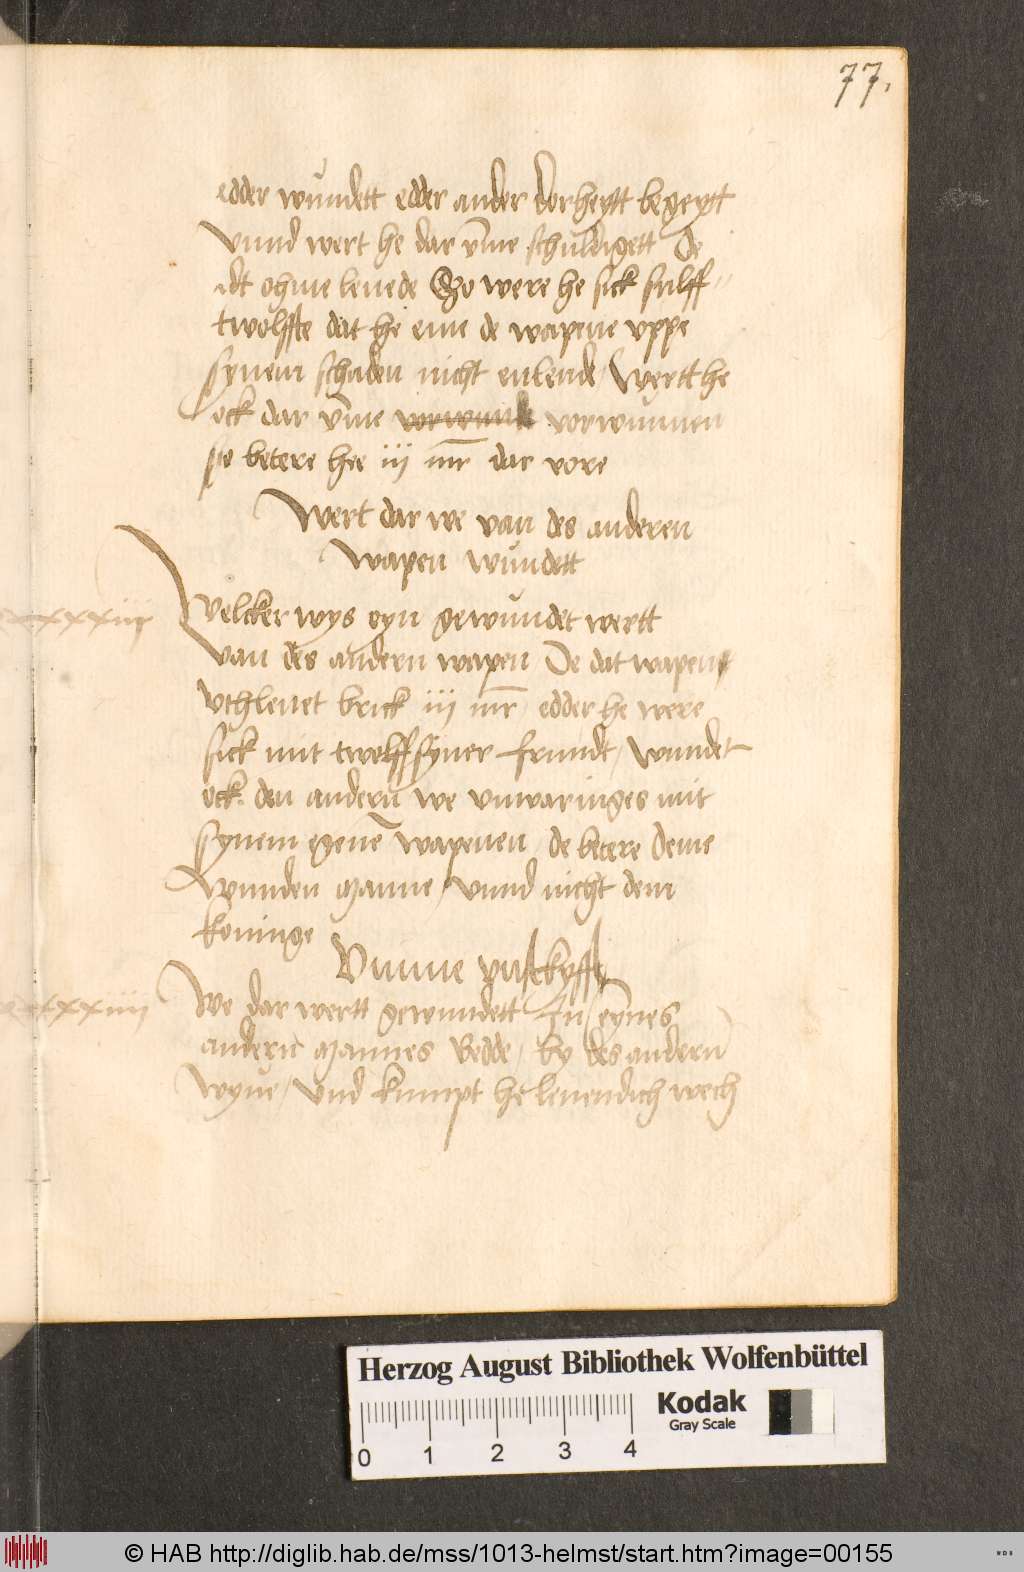 77.
edder wundett edder ander dorheytt begeytt
vnnd wert he dar vme schuldigett De
idt ohme lenede So were he sick sulff
twolffte dat he eme de wapene vppe
synem schaden nicht enlende / Wertt he
ock dar vme vorwunnen
se betere hee iij mr dar vore
Wert dar we van des anderen
wapen wundett
xxxiij
Welcker wys eyn gewundet wertt
van des andern wapen / De dat wapent
vthlenet brick iij mr / edder he were
sick mit twolff syner frundt / wundet
ock den andern we vnwaringes mit
synem egene wapenen / de betere deme
wunden manne / vnnd nicht dem
koninge
Vmme
xxxiiij
We dar wertt gewundett In eynes
andern mannes Bedde / by des andern
wyue / vnd kumpt he leuendich wech
Herzog August Bibliothek Wolfenbüttel
Kodak
Gray Scale
0 1 2 3 4
© HAB http://diglib.hab.de/mss/1013-helmst/start.htm?image=00155